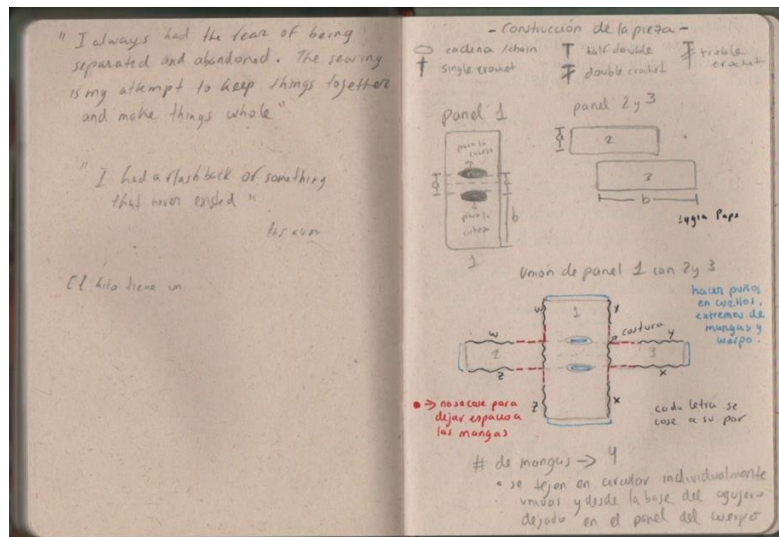 "I always had the fear of being
separated and abandoned. The sewing
is my attempt to keep things together
and make things whole"
"I had a flashback of something
that never existed"
El hilo tiene un
- Construcción de la pieza -
cadena / chain
half double
treble crochet
single crochet
double crochet
panel 1
para la cabeza
para la cabeza
b
1
panel 2 y 3
2
3
b
Lygia Pape
Unión de panel 1 con 2 y 3
hacer puños
en cuellos,
extremos de
mangas y
cuerpo.
w
1
y
costura
w
2
z
y
3
x
z
x
→ no se cose para
dejar espacio a
las mangas
cada letra se
cose a su par
# de mangas → 4
• se tejen en circular individualmente
unidas y desde la base del agujero
dejado en el panel del cuerpo